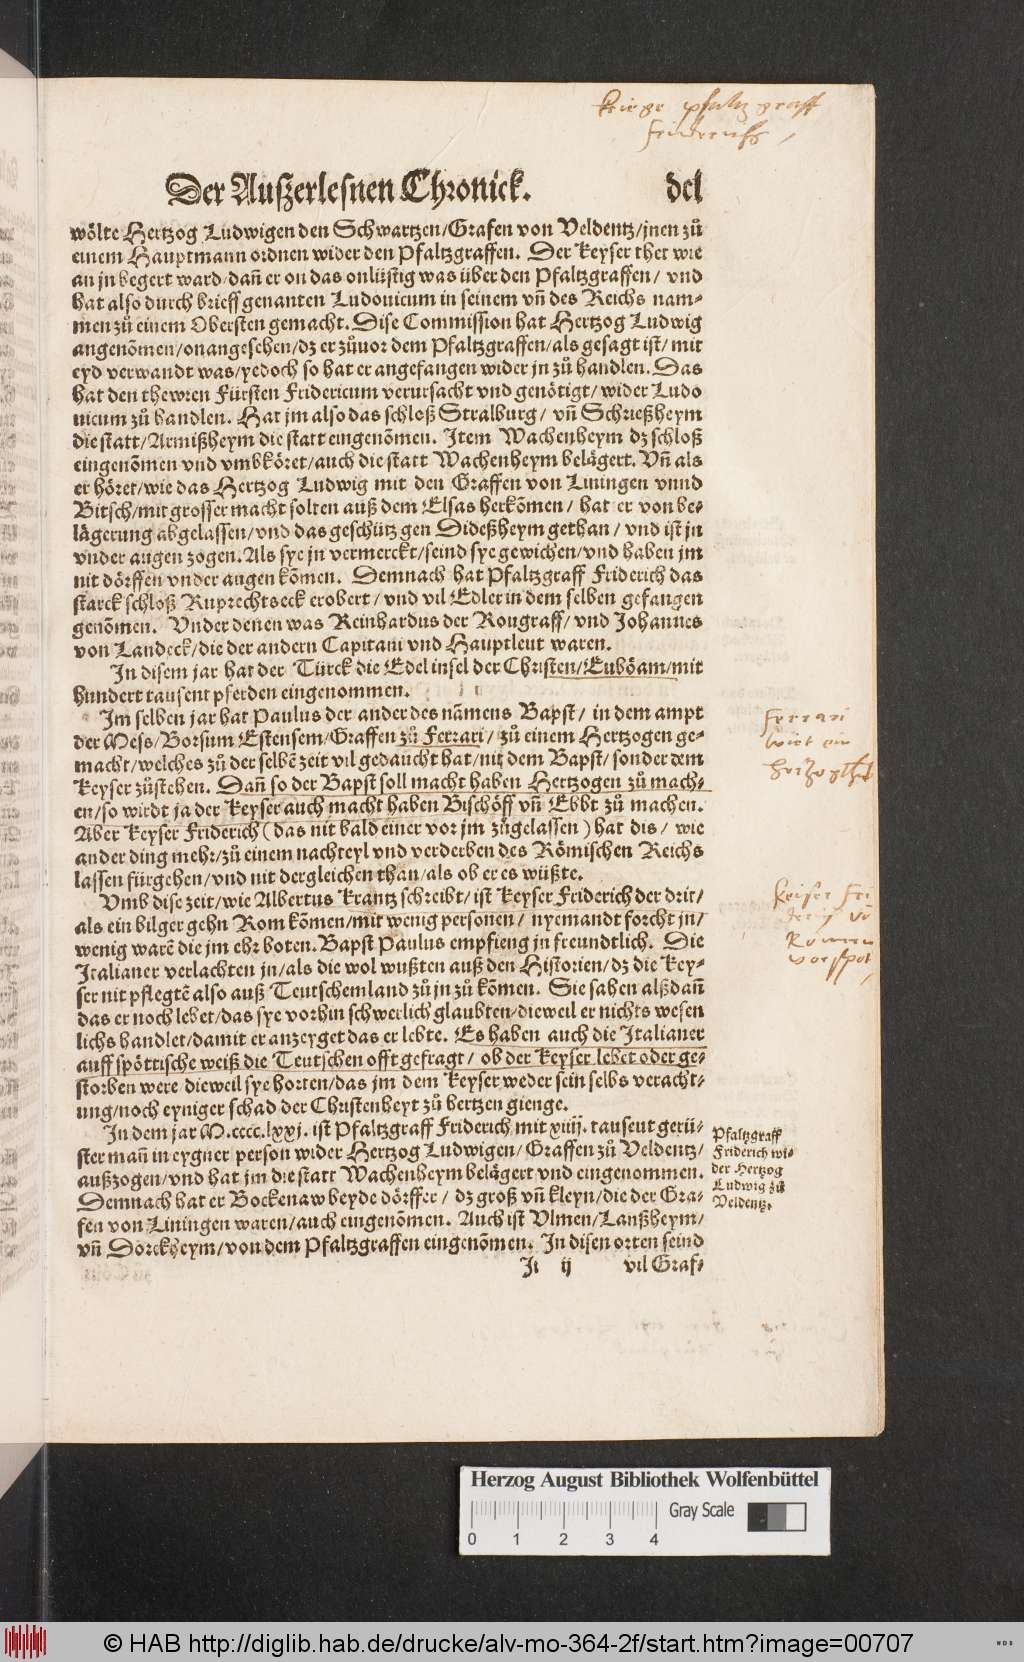 kriege pfaltzgraff
friderichs /
Der Außerlesnen Chronick. dcl
wölte Hertzog Ludwigen den Schwartzen/Grafen von Veldentz/jnen zů
einem Hauptmann ordnen wider den Pfaltzgraffen. Der Keyser thet wie
an jn begert ward/dañ er on das onlüstig was über den Pfaltzgraffen/ vnd
hat also durch brieff genanten Ludouicum in seinem vñ des Reichs nam-
men zů einem Obersten gemacht. Dise Commission hat Hertzog Ludwig
angenõmen/onangesehen/dz er zůuor dem Pfaltzgraffen/als gesagt ist/ mit
eyd verwandt was/yedoch so hat er angefangen wider jn zů handlen. Das
hat den thewren Fürsten Fridericum verursacht vnd genötigt/ wider Ludo
uicum zů handlen. Hat jm also das schloß Stralburg/ vñ Schrießheym
die statt/Armißheym die statt eingenõmen. Item Wachenheym dz schloß
eingenõmen vnd vmbköret/auch die statt Wachenheym belägert. Vñ als
er höret/wie das Hertzog Ludwig mit den Graffen von Liningen vnnd
Bitsch/mit grosser macht solten auß dem Elsas herkõmen/ hat er von be-
lägerung abgelassen/vnd das geschütz gen Dideßheym gethan/ vnd ist jn
vnder augen zogen. Als sye jn vermerckt/seind sye gewichen/vnd haben jm
nit dörffen vnder augen kõmen. Demnach hat Pfaltzgraff Friderich das
starck schloß Ruprechtseck erobert/ vnd vil Edler in dem selben gefangen
genõmen. Vnder denen was Reinhardus der Rougraff/ vnd Johannes
von Landeck/die der andern Capitani vnd Hauptleut waren.
In disem jar hat der Türck die Edel insel der Christen/Euböam/mit
hundert tausent pferden eingenommen.
Im selben jar hat Paulus der ander des nãmens Bapst/ in dem ampt
der Mess/Borsum Estensem/Graffen zů Ferrari/ zů einem Hertzogen ge-
macht/welches zů der selbẽ zeit vil gedaucht hat/nit dem Bapst/sonder dem
Keyser zůstehen. Dañ so der Bapst soll macht haben Hertzogen zů mach-
en/so wirdt ja der Keyser auch macht haben Bischöff vñ Ebbt zů machen.
Aber Keyser Friderich (das nit bald einer vor jm zůgelassen) hat dis/ wie
ander ding mehr/zů einem nachteyl vnd verderben des Römischen Reichs
lassen fürgehen/vnd nit dergleichen than/als ob er es wüßte.
Vmb dise zeit/wie Albertus Krantz schreibt/ ist Keyser Friderich der drit/
als ein bilger gehn Rom kõmen/mit wenig personen/ nyemandt forcht jn/
wenig warẽ die jm ehr boten. Bapst Paulus empfieng jn freundtlich. Die
Italianer verlachten jn/als die wol wußten auß den Historien/dz die Key-
ser nit pflegtẽ also auß Teutschem land zů jn zů kõmen. Sie sahen alßdañ
das er noch lebet/das sye vorhin schwerlich glaubten/dieweil er nichts wesen
lichs handlet/damit er anzeyget das er lebte. Es haben auch die Italianer
auff spöttische weiß die Teutschen offt gefragt/ ob der Keyser lebet oder ge-
storben were dieweil sye horten/das jm dem Keyser weder sein selbs veracht-
ung/noch eyniger schad der Christenheyt zů hertzen gienge.
In dem jar M.cccc.lxxj. ist Pfaltzgraff Friderich mit xiiij. tausent gerü-
ster mañ in eygner person wider Hertzog Ludwigen/ Graffen zů Veldentz/
außzogen/vnd hat jm die statt Wachenheym belägert vnd eingenommen.
Demnach hat er Bockenaw beyde dörffer/ dz groß vñ kleyn/die der Gra-
fen von Liningen waren/auch eingenõmen. Auch ist Vlmen/Lanßheym/
vñ Dorckheym/von dem Pfaltzgraffen eingenõmen. In disen orten seind
Ii ij vil Graf-
Ferrari
wirt ein
hertzogth
keiser fri
derich
Romern
verspot
Pfaltzgraff
Friderich wi-
der Hertzog
Ludwig zů
Veldentz.
Herzog August Bibliothek Wolfenbüttel
Gray Scale
0 1 2 3 4
© HAB http://diglib.hab.de/drucke/alv-mo-364-2f/start.htm?image=00707